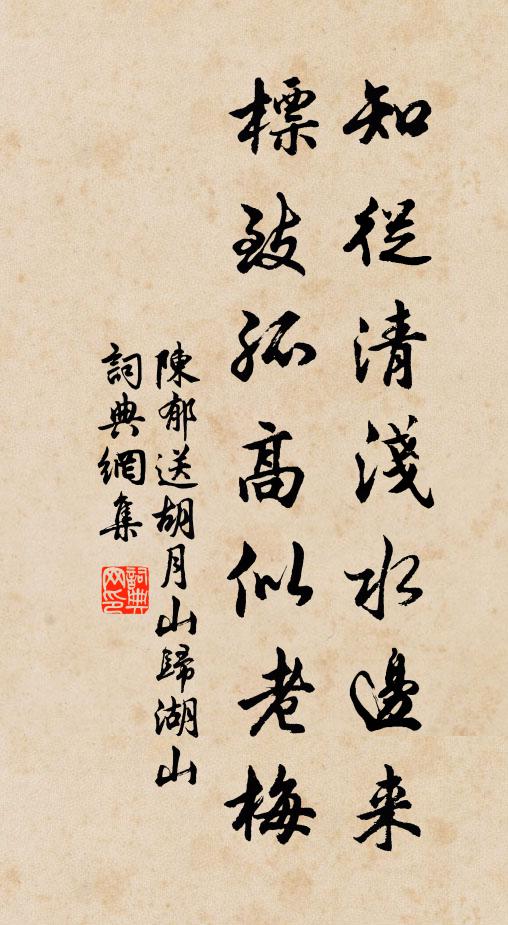 知從清淺水邊来
標致孤高似老梅
陳郁送胡月山歸湖山
詞典網集
詞典网印